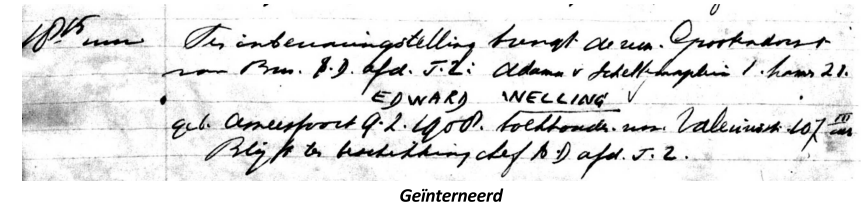 18 15 uur Ter inbewaringstelling brengt de rech. Grootendorst
van Bur. B.D. afd. J.Z: Adama v Scheltemaplein 1. kamer 21.
EDWARD WELLING
geb. Amersfoort 9.2.1908. boekhouder won. Valeriusstr. 107 III
Blijft ter beschikking chef B.D afd. J.Z.
Geïnterneerd